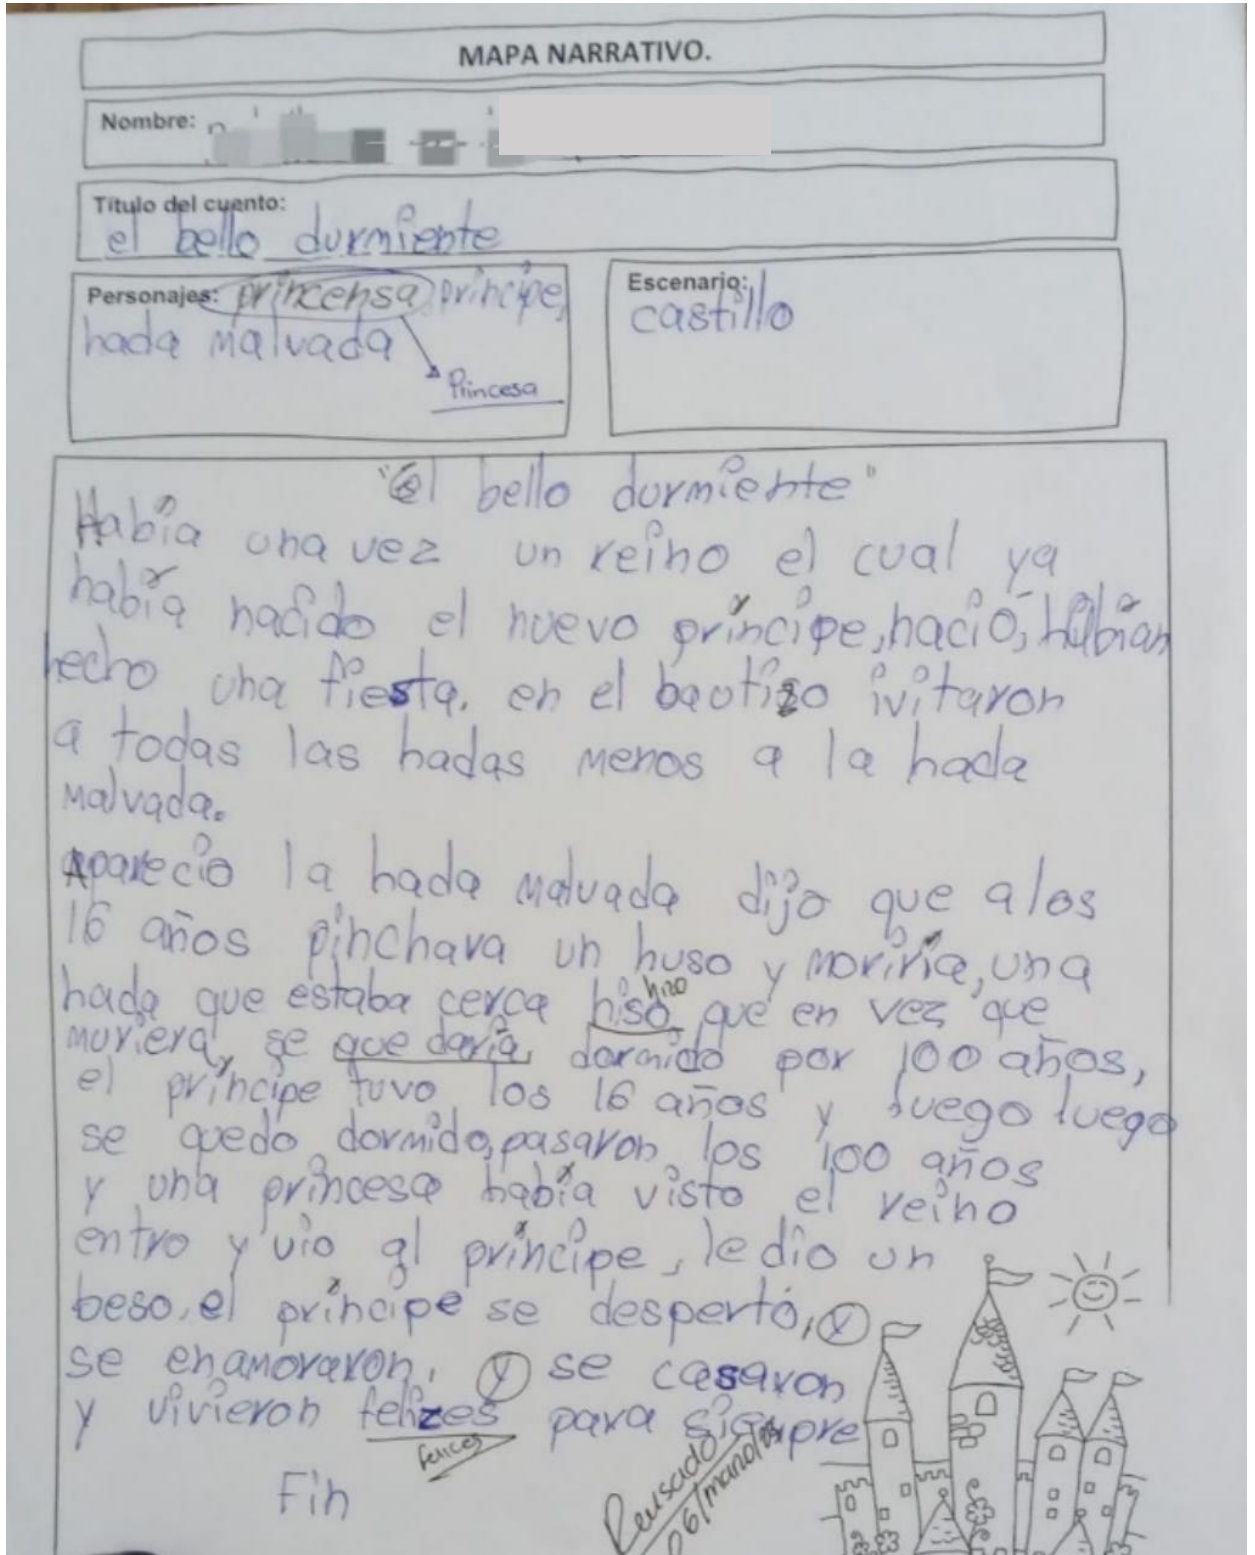 MAPA NARRATIVO.
Nombre:
Título del cuento:
el bello durmiente
Personajes: princensa príncipe,
hada malvada
Princesa
Escenario:
castillo
"El bello durmiente"
Había una vez un reino el cual ya
había nacido el nuevo príncipe, nació, habían
hecho una fiesta. en el bautizo ivitaron
a todas las hadas menos a la hada
malvada.
Aparecio la hada malvada dijo que alos
16 años pinchara un huso y moriría, una
hada que estaba cerca hiso que en vez que
hizo
muriera, se que daría dormido por 100 años,
el príncipe tuvo los 16 años y luego luego
se quedo dormido, pasaron los 100 años
y una princesa había visto el reino
entro y vio al príncipe, le dio un
beso, el príncipe se despertó, y
se enamoraron, y se casaron
y vivieron felizes para siempre
felices
Fin
Revisado